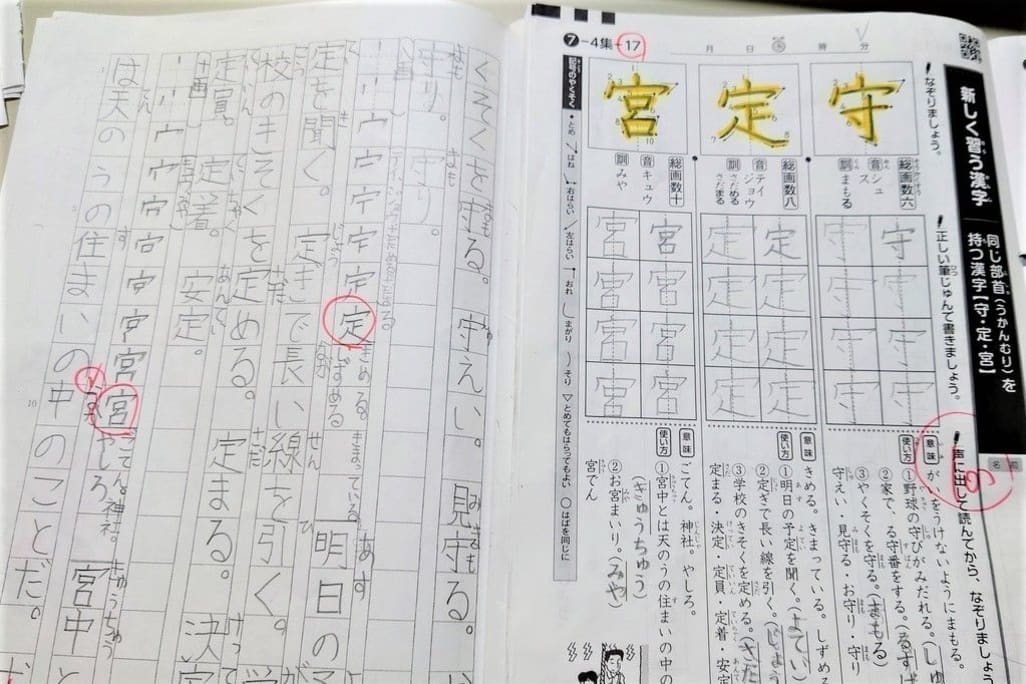 新しく習う漢字
同じ部首(うかんむり)を
持つ漢字【守・定・宮】
名前
7-4集-17
月 日 時 分
なぞりましょう。
正しい筆じゅんで書きましょう。
声に出して読んでから、なぞりましょう
守
総画数六
音 シュ
ス
訓 まもる
守 守 守 守 守 守 守 守
意味
がいをうけないようにまもる。
使い方
①野球の守びがみだれる。(しゅ
②家で、る守番をする。(るす
③やくそくを守る。(まもる)
守えい・見守る・お守り・守り
定
総画数八
音 テイ
ジョウ
訓 さだめる
さだまる
定 定 定 定 定 定 定 定
意味
きめる。きまっている。しずめ
使い方
①明日の予定を聞く。(よてい)
②定ぎで長い線を引く。(じょう
③学校のきそくを定める。(さだ
定まる・決定・定員・定着・安
宮
総画数十
音 キュウ
訓 みや
宮 宮 宮 宮 宮 宮 宮 宮
意味
ごてん。神社。やしろ。
使い方
①宮中とは天のうの住まいの中の
(きゅうちゅう)
②お宮まいり。(みや)
宮でん
記号のやくそく
とめ はね 右はらい 左はらい おれ まがり そり とめてもはらってもよい はばを同じに
くそくを守る。守えい。見守る。
守り。守り。
定 定 定 きめる。きまっている 明日の
定を聞く。定ぎで長い線を引く。
校のきそくを定める。定まる。決
定員。定着。安定。
宮 宮 ごてん。神社。やしろ 宮中と
は天のうの住まいの中のことだ。